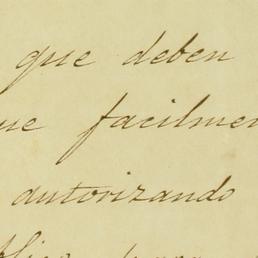 que deben
ue facilmen
autorizando